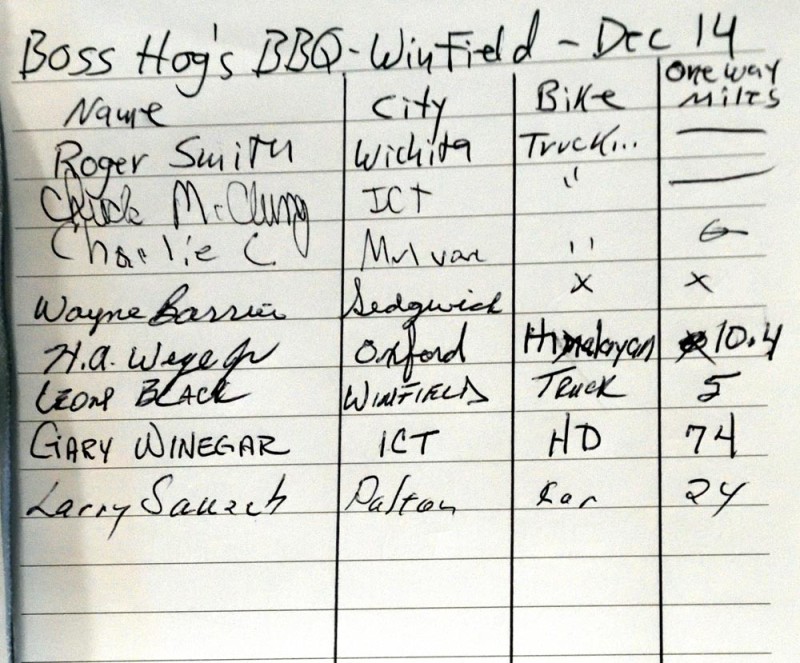 Boss Hog's BBQ-Winfield - Dec 14
Name City Bike One way Miles
Roger Smith Wichita Truck... —
Chuck McClung ICT " —
Charlie C. Mulvane "
Wayne Barrier Sedgwick x x
H.A. Wege Jr Oxford Himalayan 10.4
Leon BLACK WINFIELD TRUCK 5
GARY WINEGAR ICT HD 74
Larry Dalton Car 24